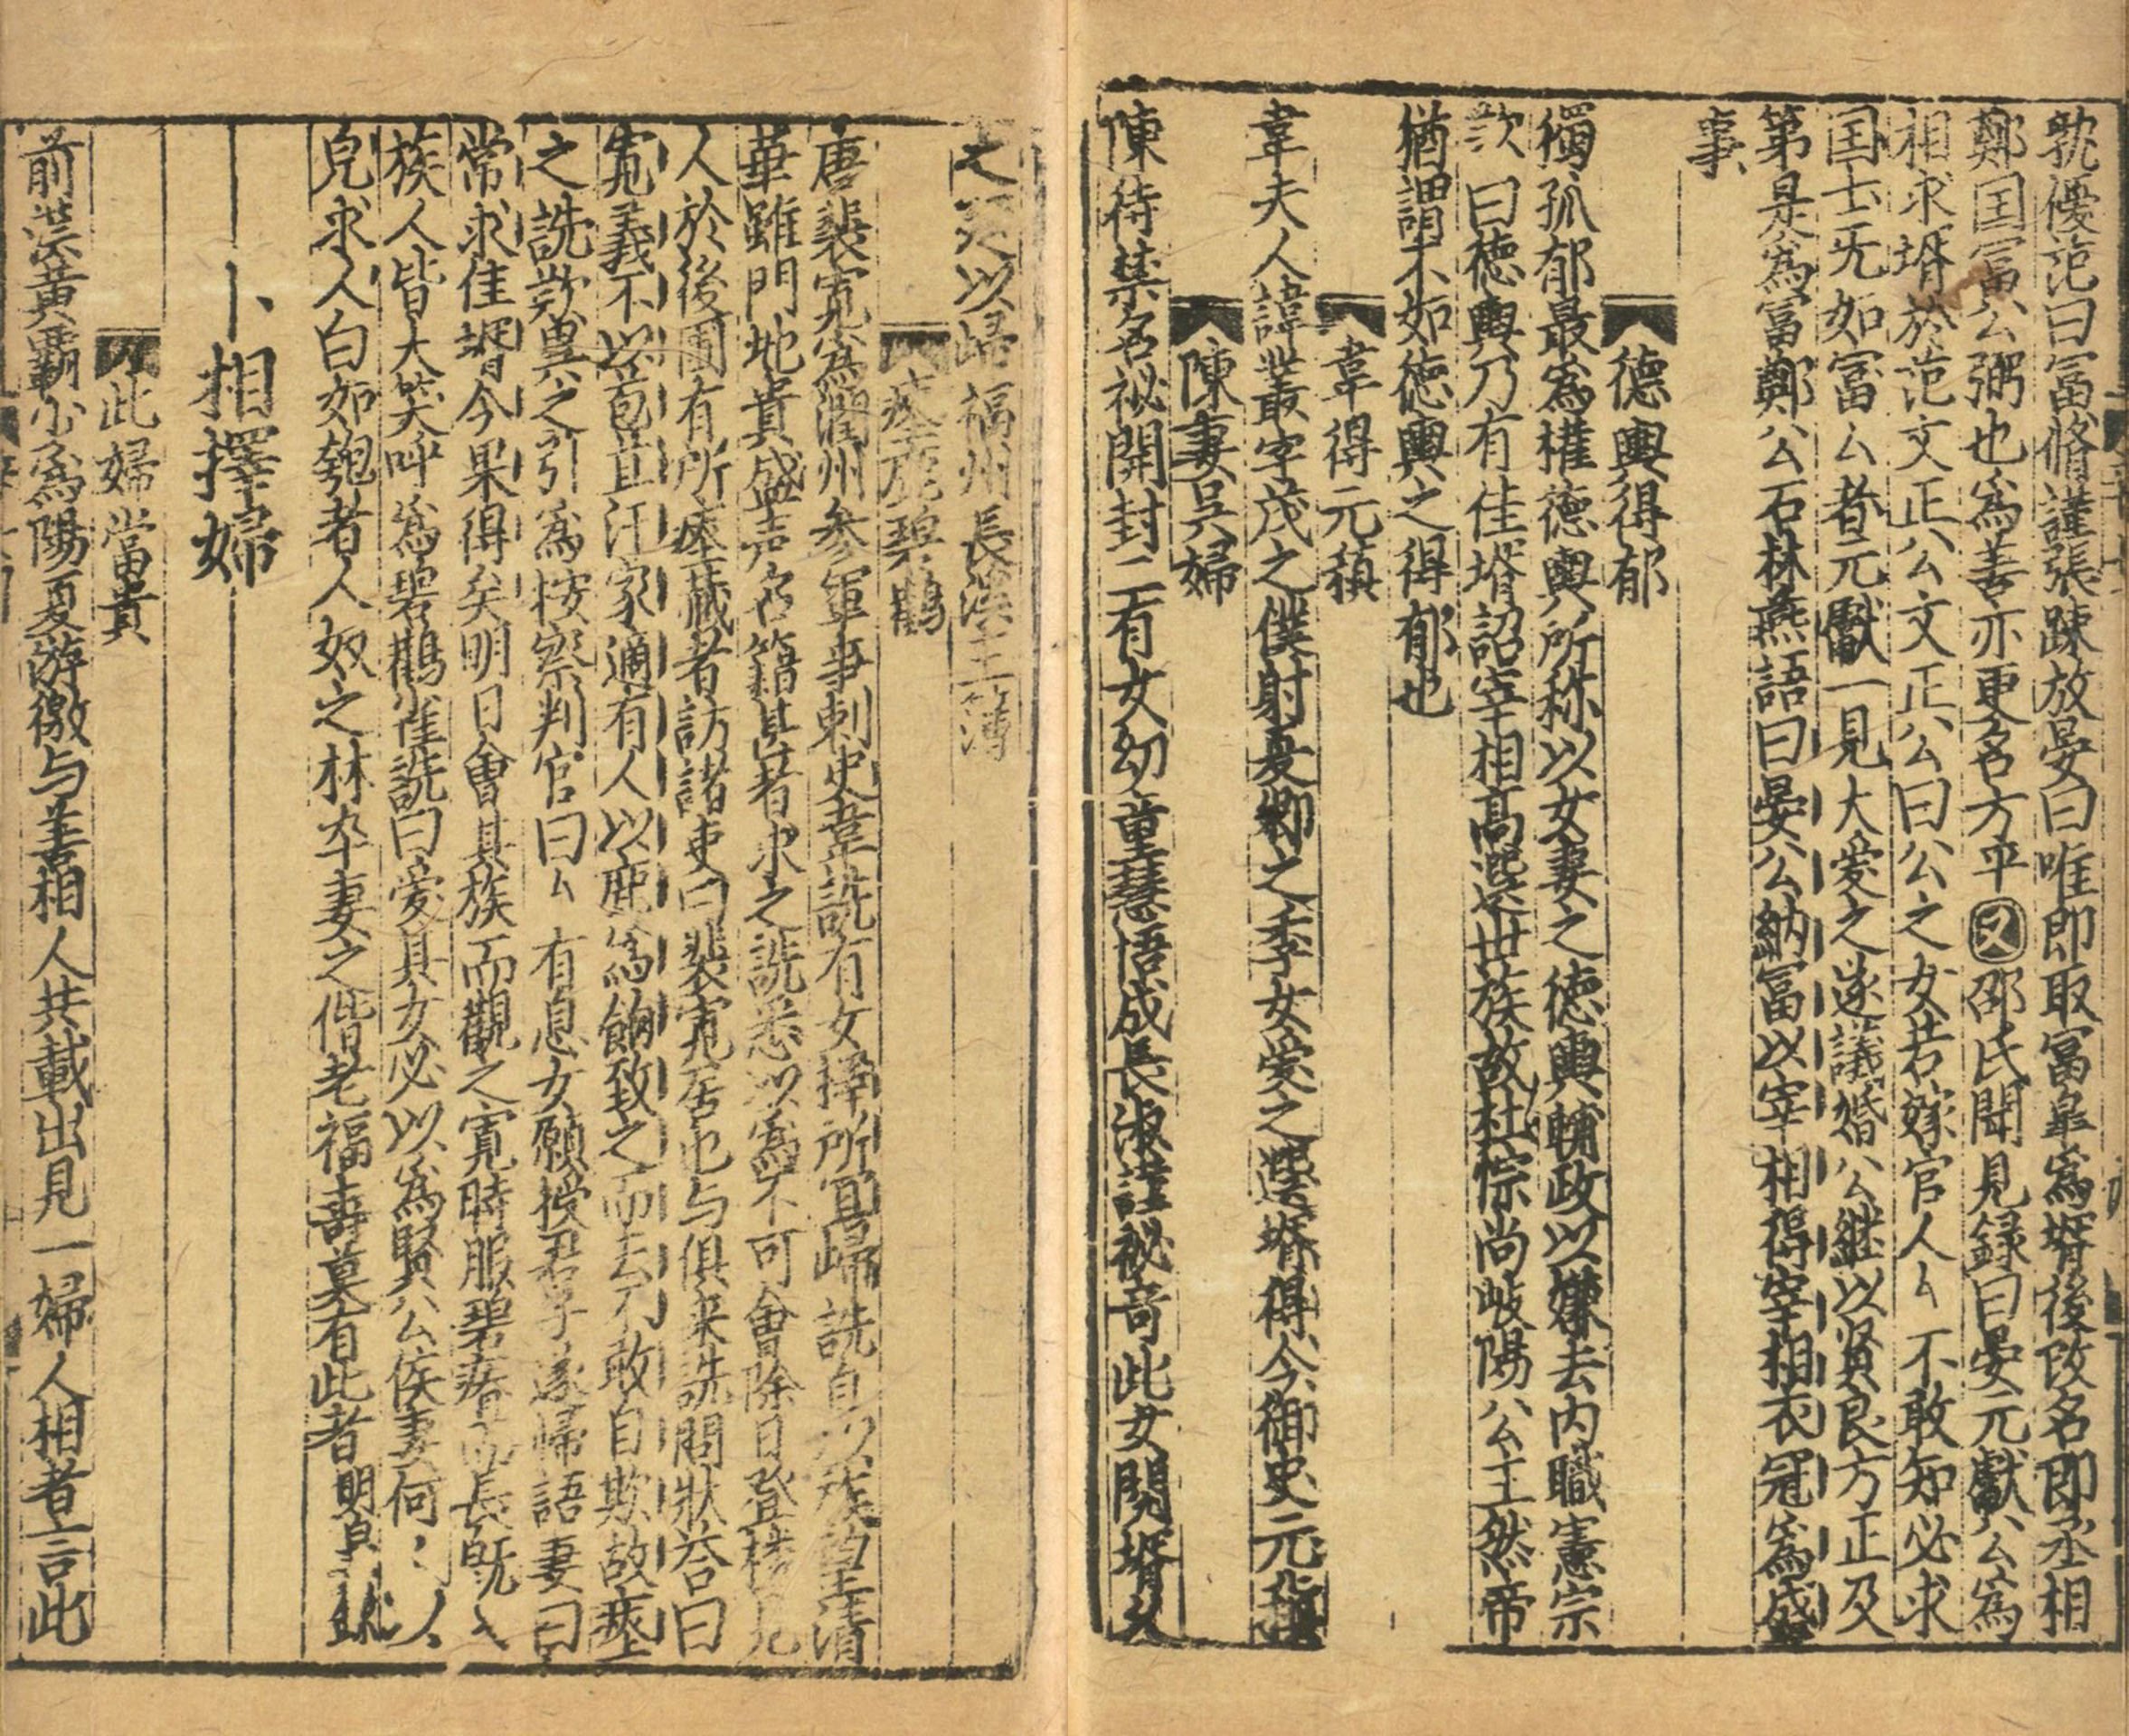 孰優范曰富脩謹張踈放晏曰唯即取富臯爲壻後改名即丞相
鄭国富公弼也爲善亦更名方平又邵氏聞見録曰晏元獻公爲
相求壻於范文正公文正公曰公之女若嫁官人ム不敢知必求
国士无如富ム者元獻一見大愛之遂議婚公継以贤良方正及
第是爲富鄭公石林燕語曰晏公納富以宰相得宰相衣冠爲盛
事
德輿得郁
獨孤郁最爲權德輿所称以女妻之德輿輔政以嫌去内職憲宗
歎曰德輿乃有佳壻詔宰相高選世族故杜悰尚岐陽公主然帝
猶謂不如德輿之得郁也
韋得元稹
韋夫人諱叢字茂之僕射夏卿之季女愛之選壻得今御史元稹
陳妻吳婦
陳待禁名祕開封二有女幼童慧悟成長淑謹祕竒此女閱壻久
之遂以歸福州長溪主簿
瘞鹿碧鸛
唐裴寛爲潤州參軍事刺史韋詵有女擇所宜歸詵自以族望清
華雖門地貴盛声名籍甚者求之詵悉以爲不可會除日登樓見
人於後圃有所瘞藏者訪諸吏曰裴寛居也与俱来詵問狀荅曰
寛義不以苞苴汙家適有人以鹿爲餉致之而去不敢自欺故瘞
之詵歎異之引爲按察判官曰ム有息女願授君子遂歸語妻曰
常求佳壻今果得矣明日會其族而觀之寛時服碧瘠而長既入
族人皆大笑呼爲碧鸛雀詵曰爱其女必以爲賢公侯妻何ミ以
皃求人白如瓠者人奴之材卒妻之偕老福壽莫有此者明皇雜録
卜相擇婦
此婦當貴
前漢黃霸少爲陽夏游徼与善相人共載出見一婦人相者言此